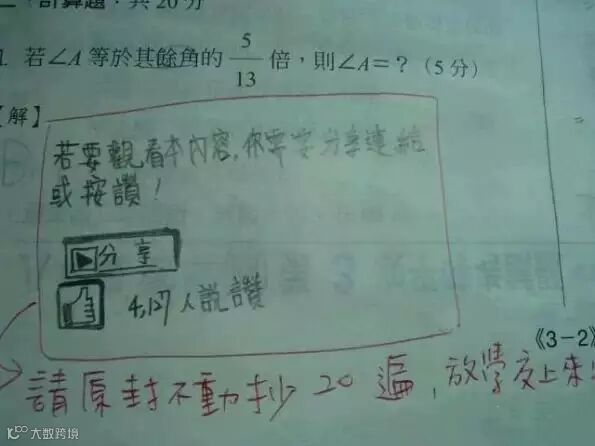 二、計算題：共20分
1. 若∠A 等於其餘角的 5/13 倍，則∠A=？（5分）
【解】
若要觀看本內容,你要分享連結
或按讚！
分享
4,127人說讚
《3-2》
請原封不動抄20遍，放學交上來
大数跨境